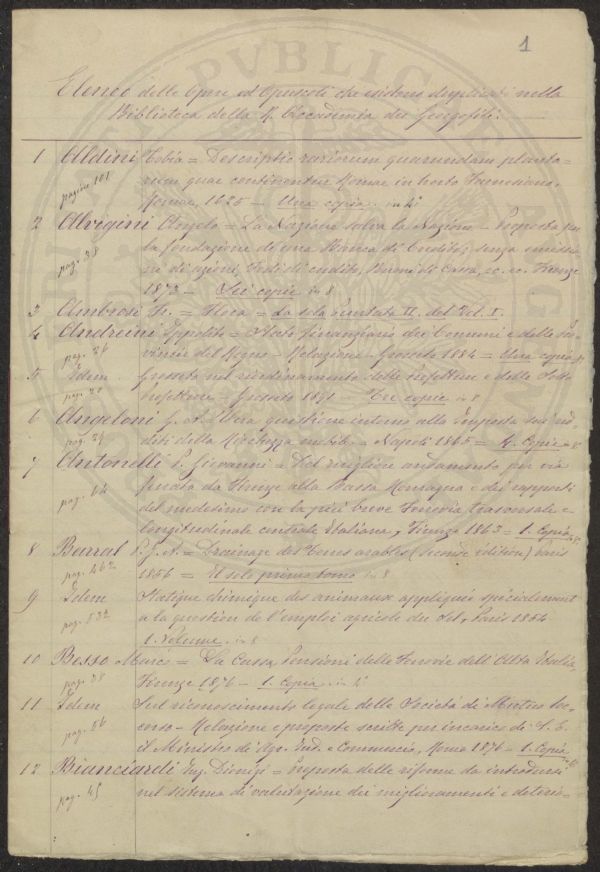 1
Elenco delle Opere ed Opuscoli che esistono duplicati nella
Biblioteca della R. Accademia dei Georgofili.
1 Aldini Tobia = Descriptio rariorum quarundam planta-
pagina 101
rum quae continentur Romae in horto Farnesiano,
Romae, 1625 - Una copia. in 4°
2 Alvigini Angelo = La Nazione salva la Nazione - Proposta per
pag. 28
la fondazione di una Banca di Credito, senza emissio-
ni di azioni, Fedi di credito, Buoni di Cassa, ec. ec. Firenze
1873 - Sei copie in 8
3 Ambrosi Fr. = Flora = La sola Puntata II. del Vol. I.
4 Andreini Ippolito = Stato finanziario dei Comuni e delle Pro-
pag. 26
vincie del Regno - Relazione - Grosseto 1884 = Una copia
5 Idem Grosseto nel riordinamento delle Prefetture e delle Sotto
pag. 28
Prefetture - Grosseto 1891 - Tre copie in 8
6 Angeloni G. A. Una quistione intorno alla Imposta sui red-
pag. 29
diti della Ricchezza mobile - Napoli 1865 = 4. Copie in 8
7 Antonelli P. Giovanni = Del miglior andamento per via
pag. 64
ferrata da Firenze alla Bassa Romagna e dei rapporti
del medesimo con la più breve Ferrovia trasversale e
longitudinale centrale Italiana, Firenze 1863 - 1. Copia in 8°
8 Barral I. J. A. = Drainage des Terres arables (seconde édition) Paris
pag. 462
1856 = Il solo primo tomo in 8
9 Idem Statique chimique des animaux appliquée spécialement
pag. 532
a la question de l'emploi agricole du sel, Paris 1854
1. Volume. in 8
10 Besso Marco = La Cassa Pensioni delle Ferrovie dell'Alta Italia,
pag. 28
Firenze 1876 - 1. Copia in 4°
11 Idem Sul riconoscimento legale delle Società di Mutuo Soc-
pag. 56
corso - Relazione e proposte scritte per incarico di S. E.
il Ministro di Agr. Ind. e Commercio, Roma 1876 - 1. Copia
12 Bianciardi Ing. Dionigi = Proposta delle riforme da introdursi
pag. 45
nel sistema di valutazione dei miglioramenti e deterio-